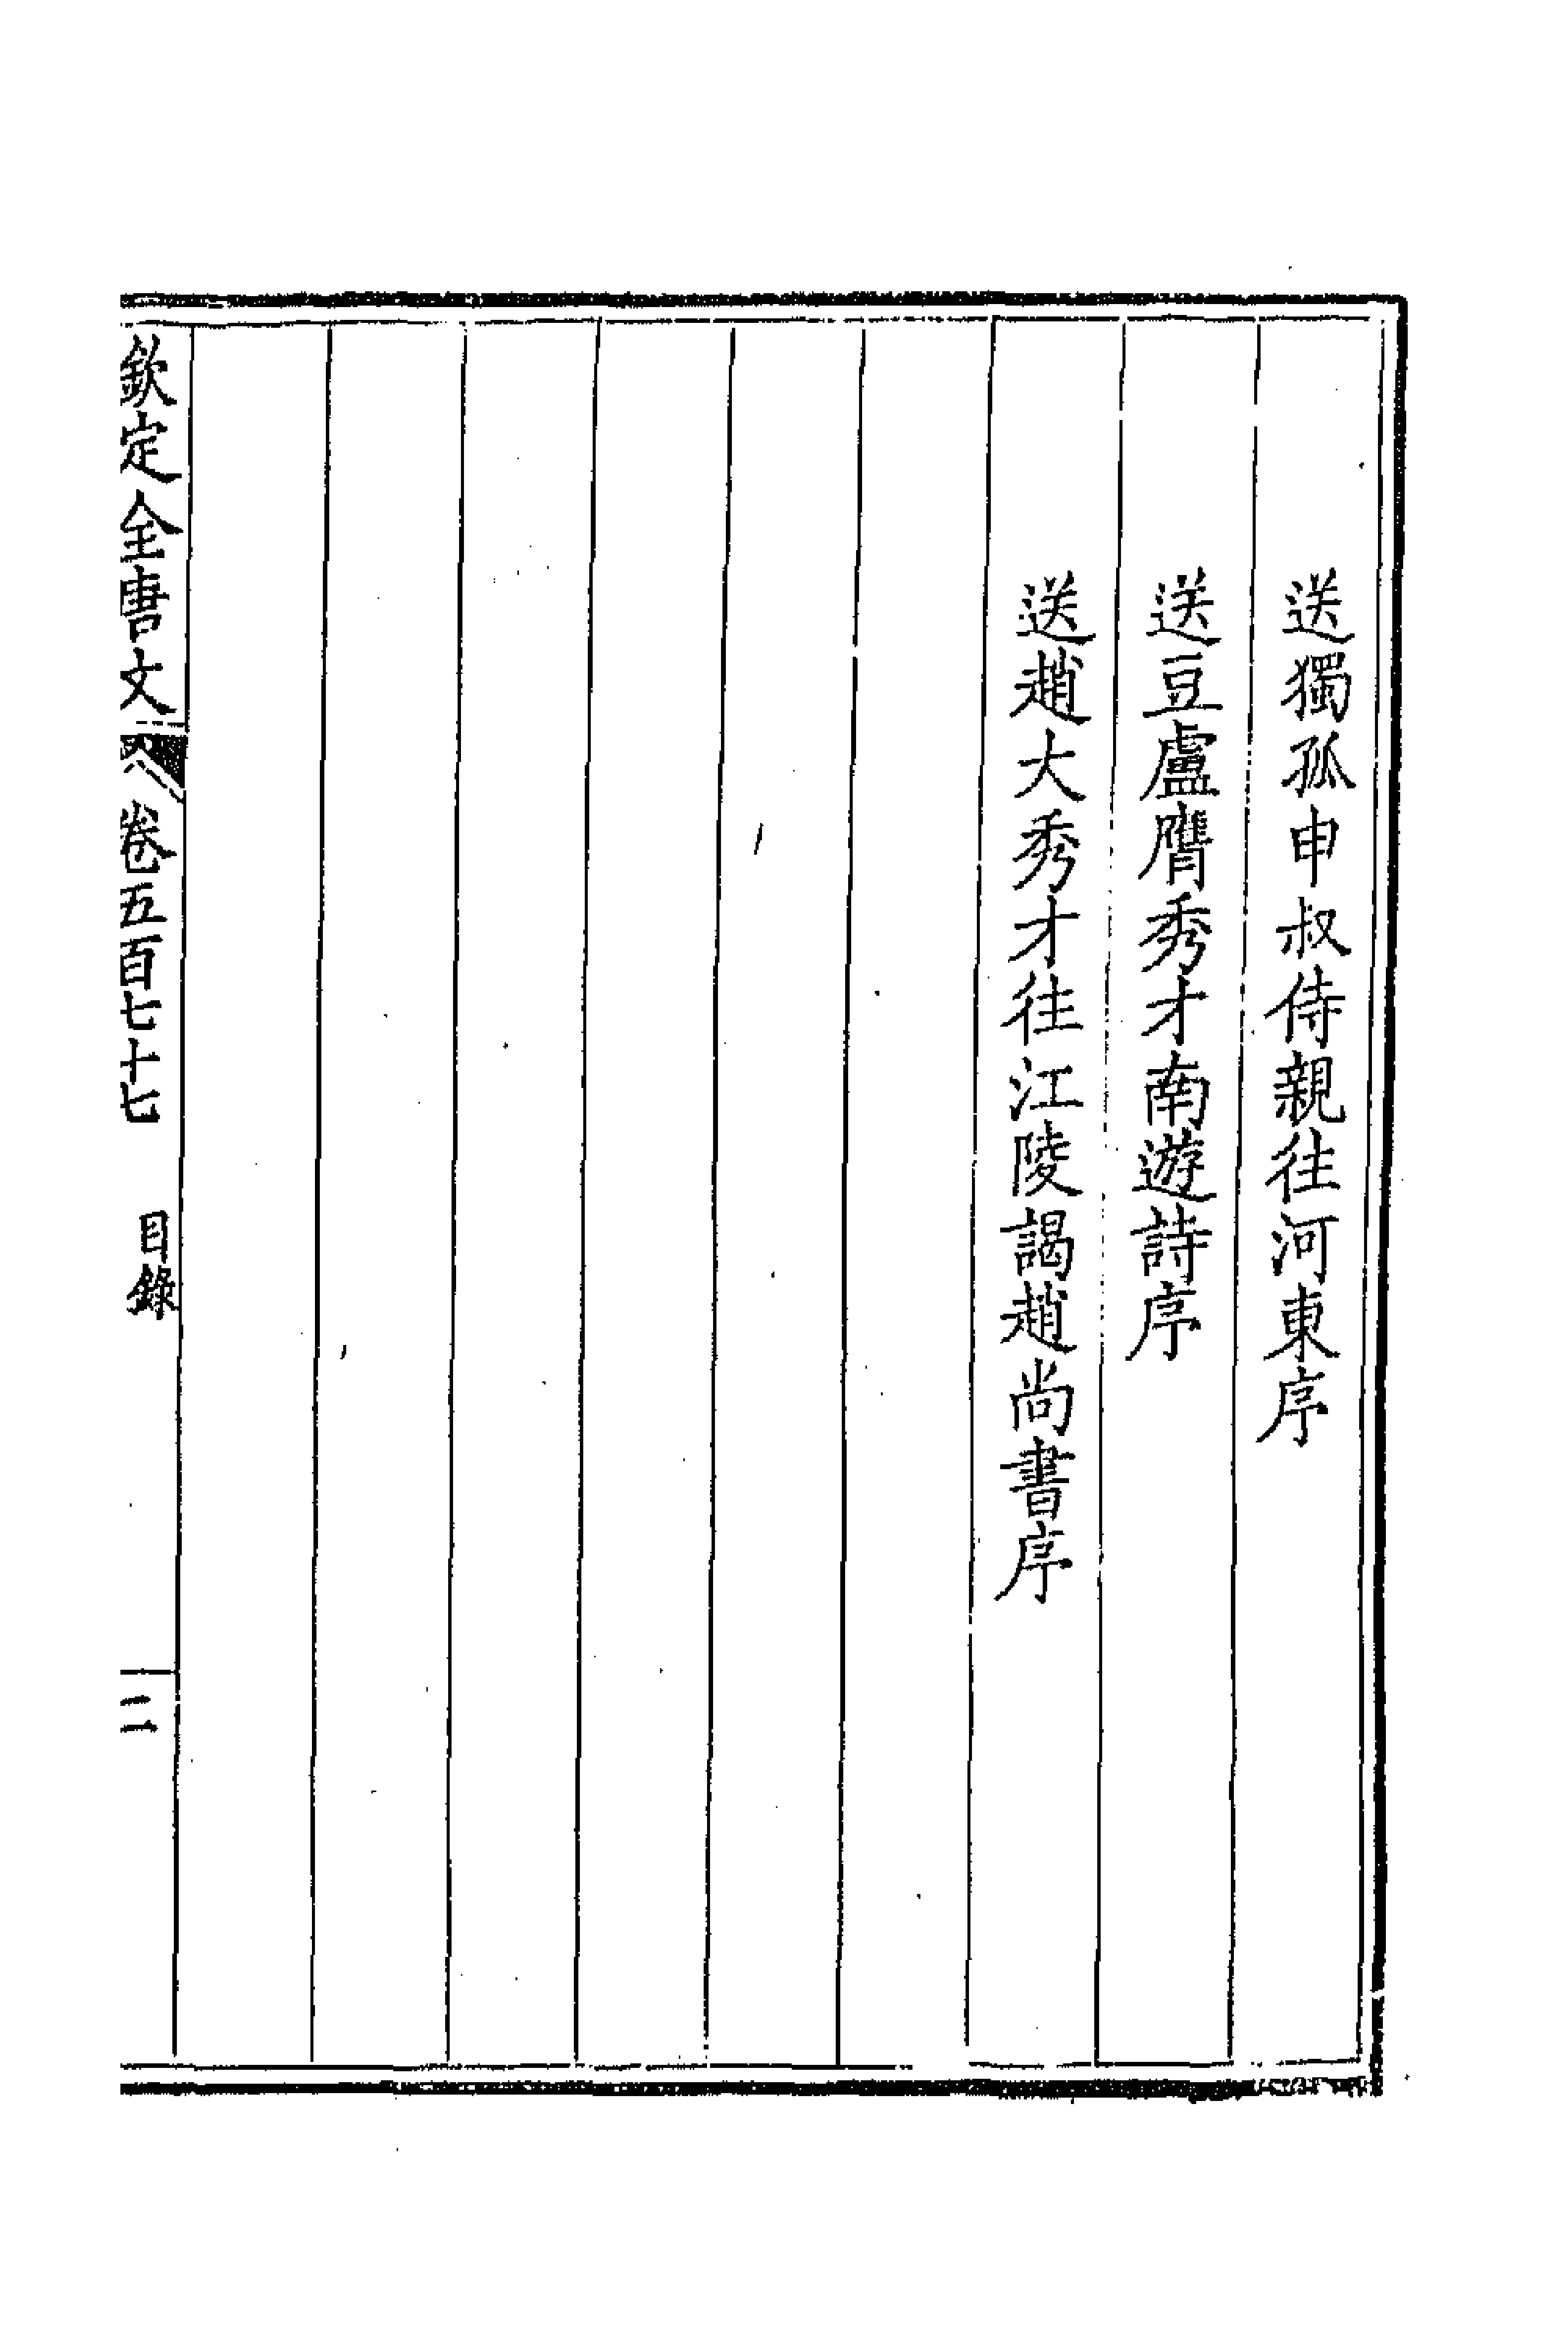 送獨孤申叔侍親往河東序
送豆盧膺秀才南遊詩序
送趙大秀才往江陵謁趙尚書序
欽定全唐文 卷五百七十七 目錄 二